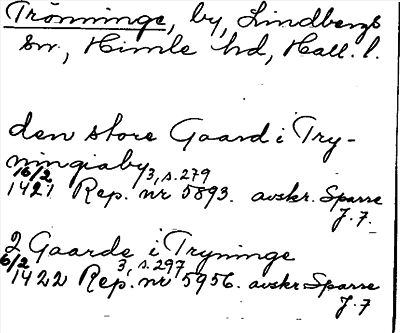 Trönninge, by, Lindbergs
sn., Himle hd, Hall. l.
den store Gaard i Try-
ningiaby
16/2 1421 Rep. nr 5893. 3, s. 279 avskr. Sparre
J. 7.
2 Gaarde i Tryninge
6/2 1422 Rep. nr 5956. 3, s. 297 avskr. Sparre
J. 7